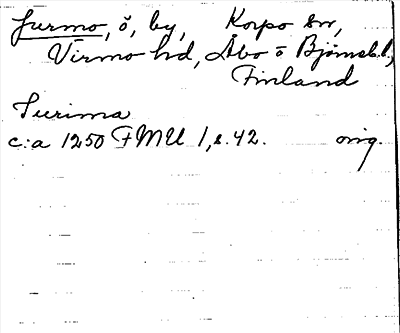 Jurmo, ö, by, Korpo sn,
Virmo hd, Åbo o Björneb. l.,
Finland
Jurima
c:a 1250 FMU 1, s. 42. orig.